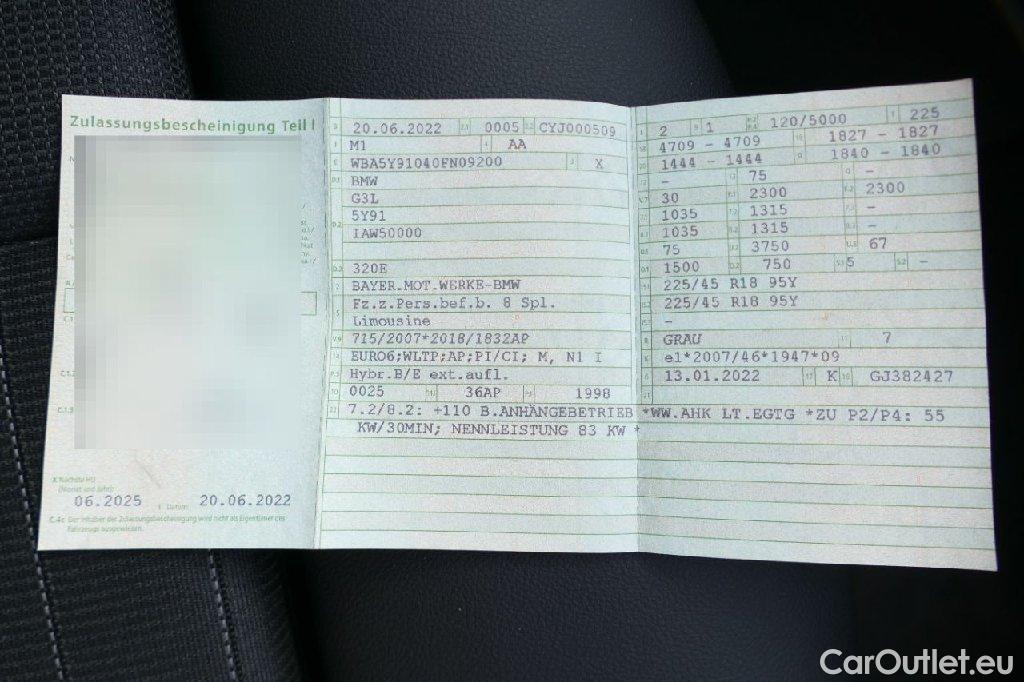 Zulassungsbescheinigung Teil I
X Nächste HU
(Monat und Jahr)
06.2025 I Datum 20.06.2022
C.4c Der Inhaber der Zulassungsbescheinigung wird nicht als Eigentümer des Fahrzeugs ausgewiesen.
B 20.06.2022 2.1 0005 2.2 CYJ000509
J M1 4 AA
E WBA5Y91040FN09200 3 X
D.1 BMW
G3L
5Y91
D.2 IAW50000
D.3 320E
2 BAYER.MOT.WERKE-BMW
5 Fz.z.Pers.bef.b. 8 Spl.
Limousine
V.9 715/2007*2018/1832AP
14 EURO6;WLTP;AP;PI/CI; M, N1 I
P.3 Hybr.B/E ext.aufl.
10 0025 14.1 36AP P.1 1998
22 7.2/8.2: +110 B.ANHÄNGEBETRIEB *WW.AHK LT.EGTG *ZU P2/P4: 55
KW/30MIN; NENNLEISTUNG 83 KW *
L 2 9 1 P.2 P.4 120/5000 T 225
18 4709 - 4709 19 1827 - 1827
20 1444 - 1444 G 1840 - 1840
12 - 13 75 Q -
V.7 30 F.1 2300 F.2 2300
7.1 1035 7.2 1315 7.3 -
8.1 1035 8.2 1315 8.3 -
U.1 75 U.2 3750 U.3 67
O.1 1500 O.2 750 S.1 5 S.2 -
15.1 225/45 R18 95Y
15.2 225/45 R18 95Y
15.3 -
R GRAU 11 7
K e1*2007/46*1947*09
6 13.01.2022 17 K 16 GJ382427
21
CarOutlet.eu